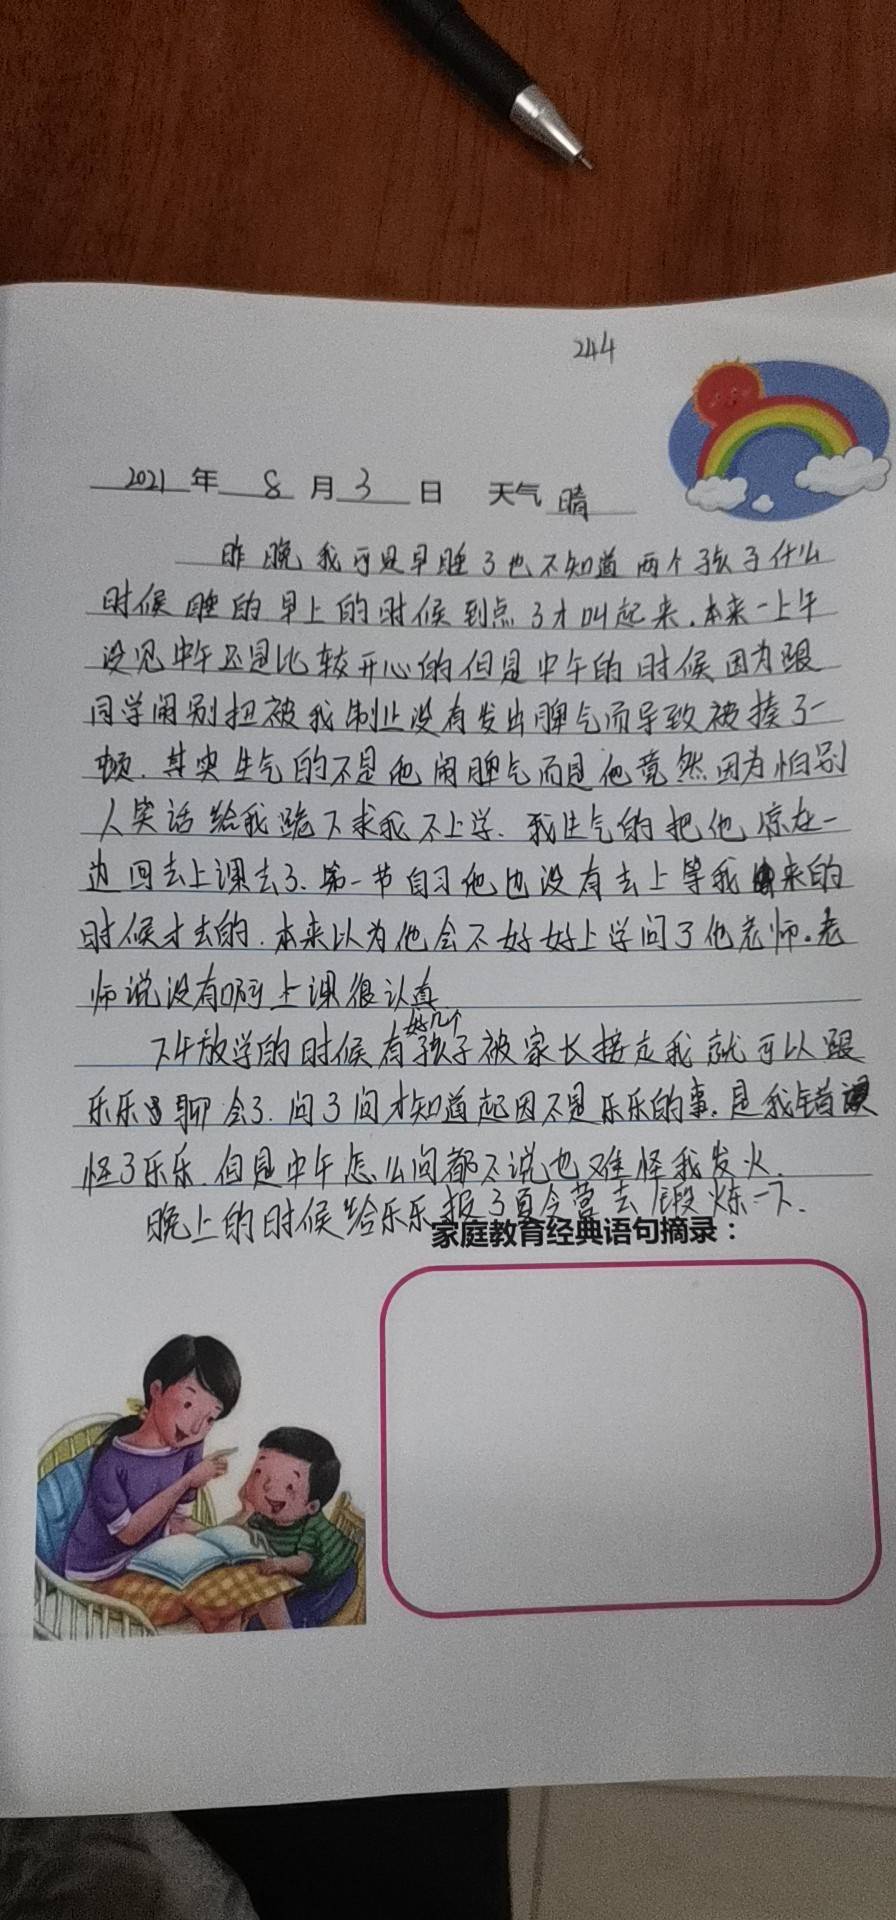 244
2021 年 8 月 3 日 天气 晴
昨晚我可是早睡了也不知道两个孩子什么
时候睡的早上的时候到点了才叫起来.本来一上午
没见中午还是比较开心的但是中午的时候因为跟
同学闹别扭被我制止没有发出脾气而导致被揍了一
顿.其实生气的不是他闹脾气而是他竟然因为怕别
人笑话给我跪下求我不上学.我生气的把他晾在一
边回去上课去了.第一节自习他也没有去上等我来的
时候才去的.本来以为他会不好好上学问了他老师.老
师说没有啊上课很认真
下午放学的时候有好几个孩子被家长接走我就可以跟
乐乐聊会了.问了问才知道起因不是乐乐的事.是我错误
怪了乐乐.但是中午怎么问都不说也难怪我发火.
晚上的时候给乐乐报了夏令营去锻炼一下.
家庭教育经典语句摘录：